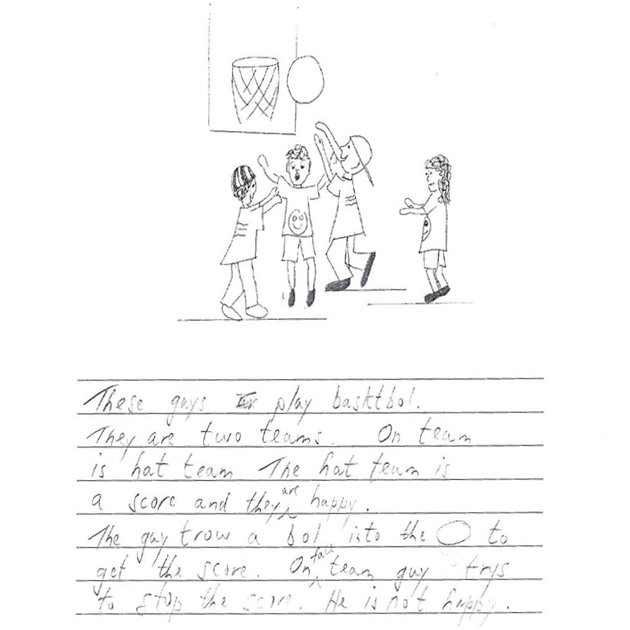 These guys play basktbol.
They are two teams. On team
is hat team The hat team is
a score and they are happy.
The guy trow a bol into the to
get the score. On face team guy trys
to stop the score. He is not happy.